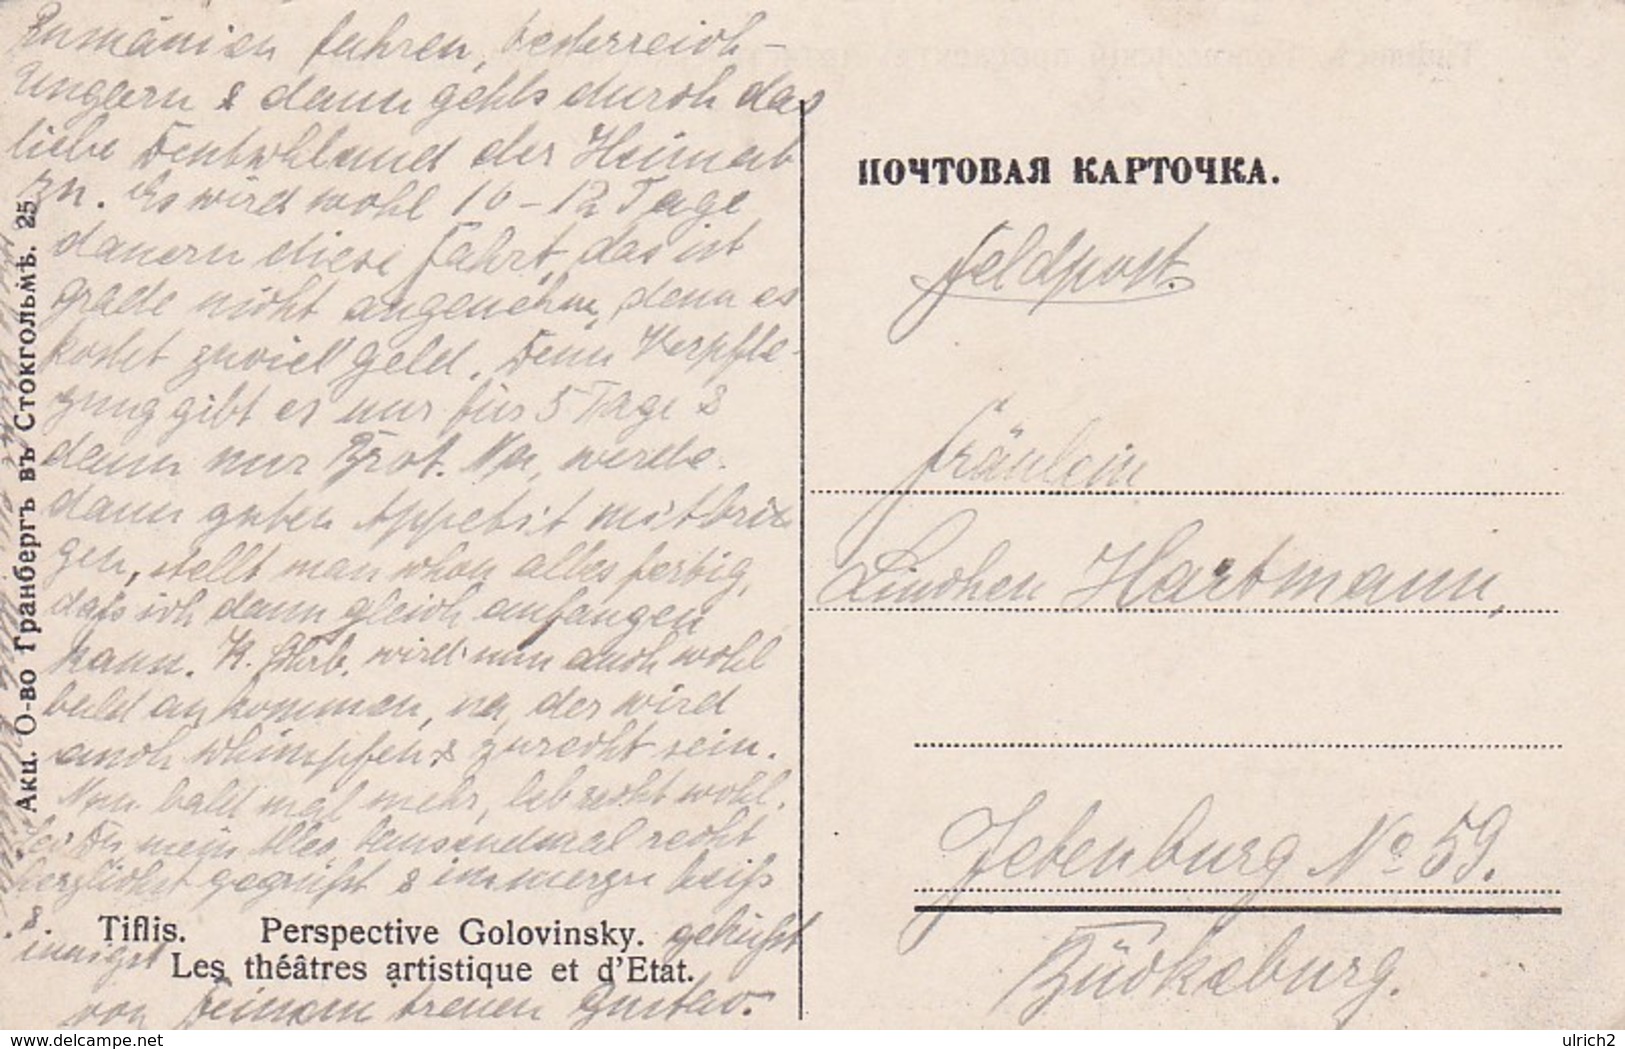 Rumänien fahren, Oesterreich-
Ungarn & dann gehts durch das
liebe Deutschland der Heimat
zu. Es wird wohl 10-12 Tage
dauern diese Fahrt, das ist
grade nicht angenehm, denn es
kostet zuviel Geld. Denn Verpfle-
gung gibt es nur für 5 Tage &
dann nur Brot. Na, werde
dann guten Appetit mitbrin
gen, stellt man schon alles fertig,
dass ich dann gleich anfangen
kann. K. wird nun auch wohl
bald ankommen, na, der wird
auch schimpfen & zurecht sein.
Nun bald mal mehr, leb recht wohl.
Sei Du mein Alles tausendmal recht
herzlichst gegrüßt & immerzu heiß
& innigst geküßt
von Deinem treuen Gustav.
Tiflis. Perspective Golovinsky.
Les théâtres artistique et d'Etat.
Акц. О-во Гранбергъ въ Стокгольмѣ. 25
ПОЧТОВАЯ КАРТОЧКА.
Feldpost.
Fräulein
Linchen Hartmann,
Jetenburg No 59.
Bückeburg.
ulrich2
delcampe.net